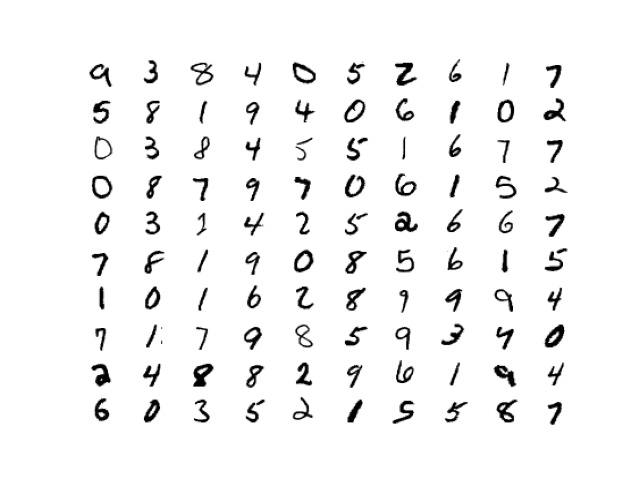 9 3 8 4 0 5 2 6 1 7
5 8 1 9 4 0 6 1 0 2
0 3 8 4 5 5 1 6 7 7
0 8 7 9 7 0 6 1 5 2
0 3 1 4 2 5 2 6 6 7
7 8 1 9 0 8 5 6 1 5
1 0 1 6 2 8 9 9 9 4
7 1 7 9 8 5 9 3 4 0
2 4 8 8 2 9 6 1 9 4
6 0 3 5 2 1 5 5 8 7